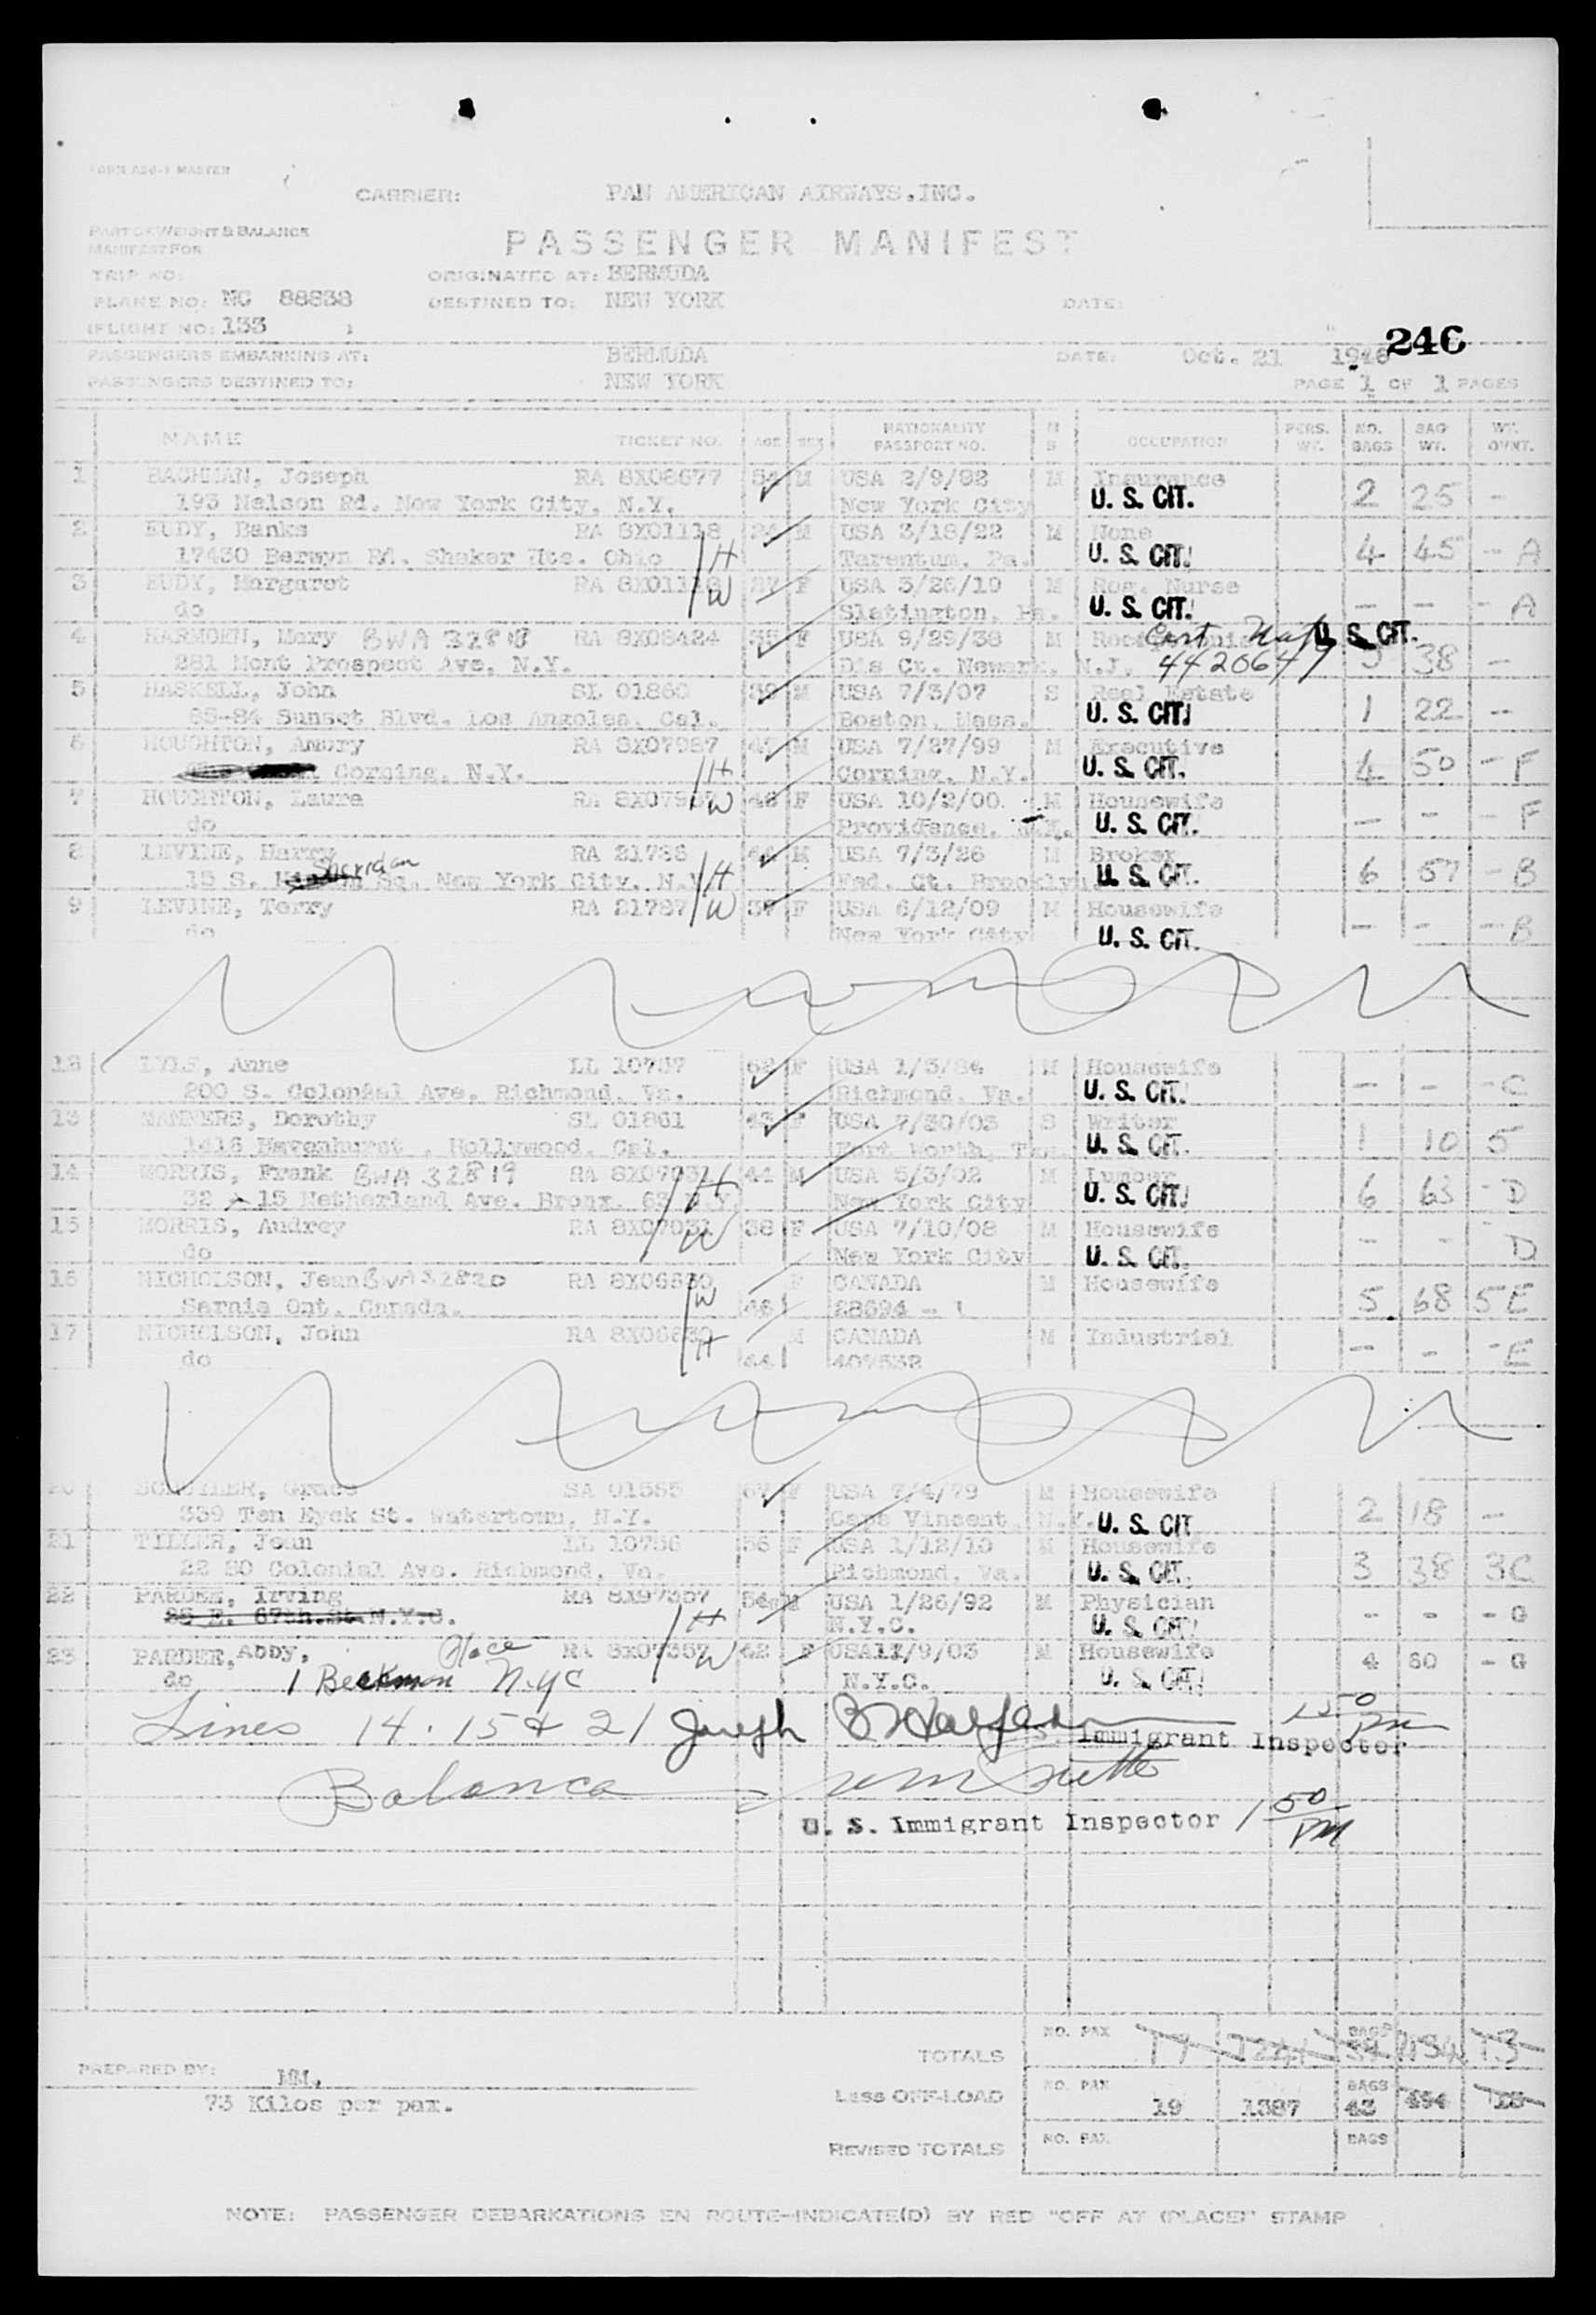 FORM ASO-1 MASTER
CARRIER: PAN AMERICAN AIRWAYS, INC.
PART OF WEIGHT & BALANCE
MANIFEST FOR
PASSENGER MANIFEST
TRIP NO: ORIGINATED AT: BERMUDA
PLANE NO: NC 88838 DESTINED TO: NEW YORK DATE:
FLIGHT NO: 133
246
PASSENGERS EMBARKING AT: BERMUDA DATE: Oct. 21 1946
PASSENGERS DESTINED TO: NEW YORK PAGE 1 OF 1 PAGES
NAME TICKET NO. AGE SEX NATIONALITY PASSPORT NO. M S OCCUPATION PERS. WT. NO. BAGS BAG WT. WT. OVWT.
1 BACHMAN, Joseph RA 8X08677 54 M USA 2/9/92 M Insurance
193 Nelson Rd. New York City, N.Y. New York City U. S. CIT. 2 25 -
2 EUDY, Banks RA 8X01118 24 M USA 3/18/22 M None
17430 Berwyn Rd. Shaker Hts. Ohio H Tarentum, Pa. U. S. CIT. 4 45 - A
3 EUDY, Margaret RA 8X01118 W 27 F USA 3/26/19 M Reg. Nurse
do Slatington, Pa. U. S. CIT. - - - A
4 HARMOEN, Mary BWA 32818 RA 8X08424 35 F USA 9/29/38 M Cert Nat U. S. CIT.
281 Mont Prospect Ave. N.Y. Dis Ct. Newark, N.J. 4420647 38 -
5 HASKELL, John SL 01860 39 M USA 7/3/07 S Real Estate
85-84 Sunset Blvd. Los Angeles, Cal. Boston, Mass. U. S. CIT. 1 22 -
6 HOUGHTON, Amory RA 8X07987 47 M USA 7/27/99 M Executive
Corning, N.Y. H Corning, N.Y. U. S. CIT. 4 50 - F
7 HOUGHTON, Laura RA 8X07987 W 46 F USA 10/2/00 M Housewife
do Providence, U. S. CIT. - - - F
8 LEVINE, Harry RA 21786 44 M USA 7/3/26 M Broker
15 S. Sheridan Sq. New York City, N.Y. H Nad. Ct. Brooklyn U. S. CIT. 6 57 - B
9 LEVINE, Terry RA 21787 W 37 F USA 6/12/09 M Housewife
do New York City U. S. CIT. - - - B
12 LYLE, Anne LL 10757 62 F USA 1/3/84 M Housewife
200 S. Colonial Ave. Richmond, Va. Richmond, Va. U. S. CIT. - - - C
13 MANNERS, Dorothy SL 01861 43 F USA 7/30/03 S Writer
1416 Havenhurst, Hollywood, Cal. Fort Worth, Tex. U. S. CIT. 1 10 5
14 MORRIS, Frank BWA 32819 RA 8X07031 44 M USA 5/3/02 M Lumber
32 - 15 Netherland Ave. Bronx. 63 N.Y. H New York City U. S. CIT. 6 63 - D
15 MORRIS, Audrey RA 8X07031 38 F USA 7/10/08 M Housewife
do W New York City U. S. CIT. - - - D
16 NICHOLSON, Jean BWA 32820 RA 8X06630 F CANADA M Housewife
Sarnia Ont. Canada. W 46 28694 - 1 5 68 5E
17 NICHOLSON, John RA 8X06630 M CANADA M Industrial
do H 44 407532 - - - E
20 SCHUYLER, Grace SA 01585 67 F USA 7/4/79 M Housewife
339 Ten Eyck St. Watertown, N.Y. Cape Vincent, N.Y. U. S. CIT 2 18 -
21 TILLER, Jean LL 10756 36 F USA 1/12/10 M Housewife
22 SO Colonial Ave. Richmond, Va. Richmond, Va. U. S. CIT. 3 38 3C
22 PARDEE, Irving RA 8X07357 54 M USA 1/26/92 M Physician
25 E. 67th. St. N.Y.C. H N.Y.C. U. S. CIT. - - - G
23 PARDEE, Abby, Place RA 8X07357 W 42 F USA 11/9/03 M Housewife 4 60 - G
do 1 Beekman N.Y.C N.Y.C. U. S. CIT.
Lines 14. 15 & 21 Joseph 1 50 PM
Immigrant Inspector
Balance
U. S. Immigrant Inspector 1 50 PM
TOTALS NO. PAX 17 1241 BAGS 39 434 13
PREPARED BY: MM.
73 Kilos per pax.
Less OFF-LOAD NO. PAX 19 1387 BAGS 43 494 13
REVISED TOTALS NO. PAX BAGS
NOTE: PASSENGER DEBARKATIONS EN ROUTE-INDICATE(D) BY RED "OFF AT (PLACE)" STAMP